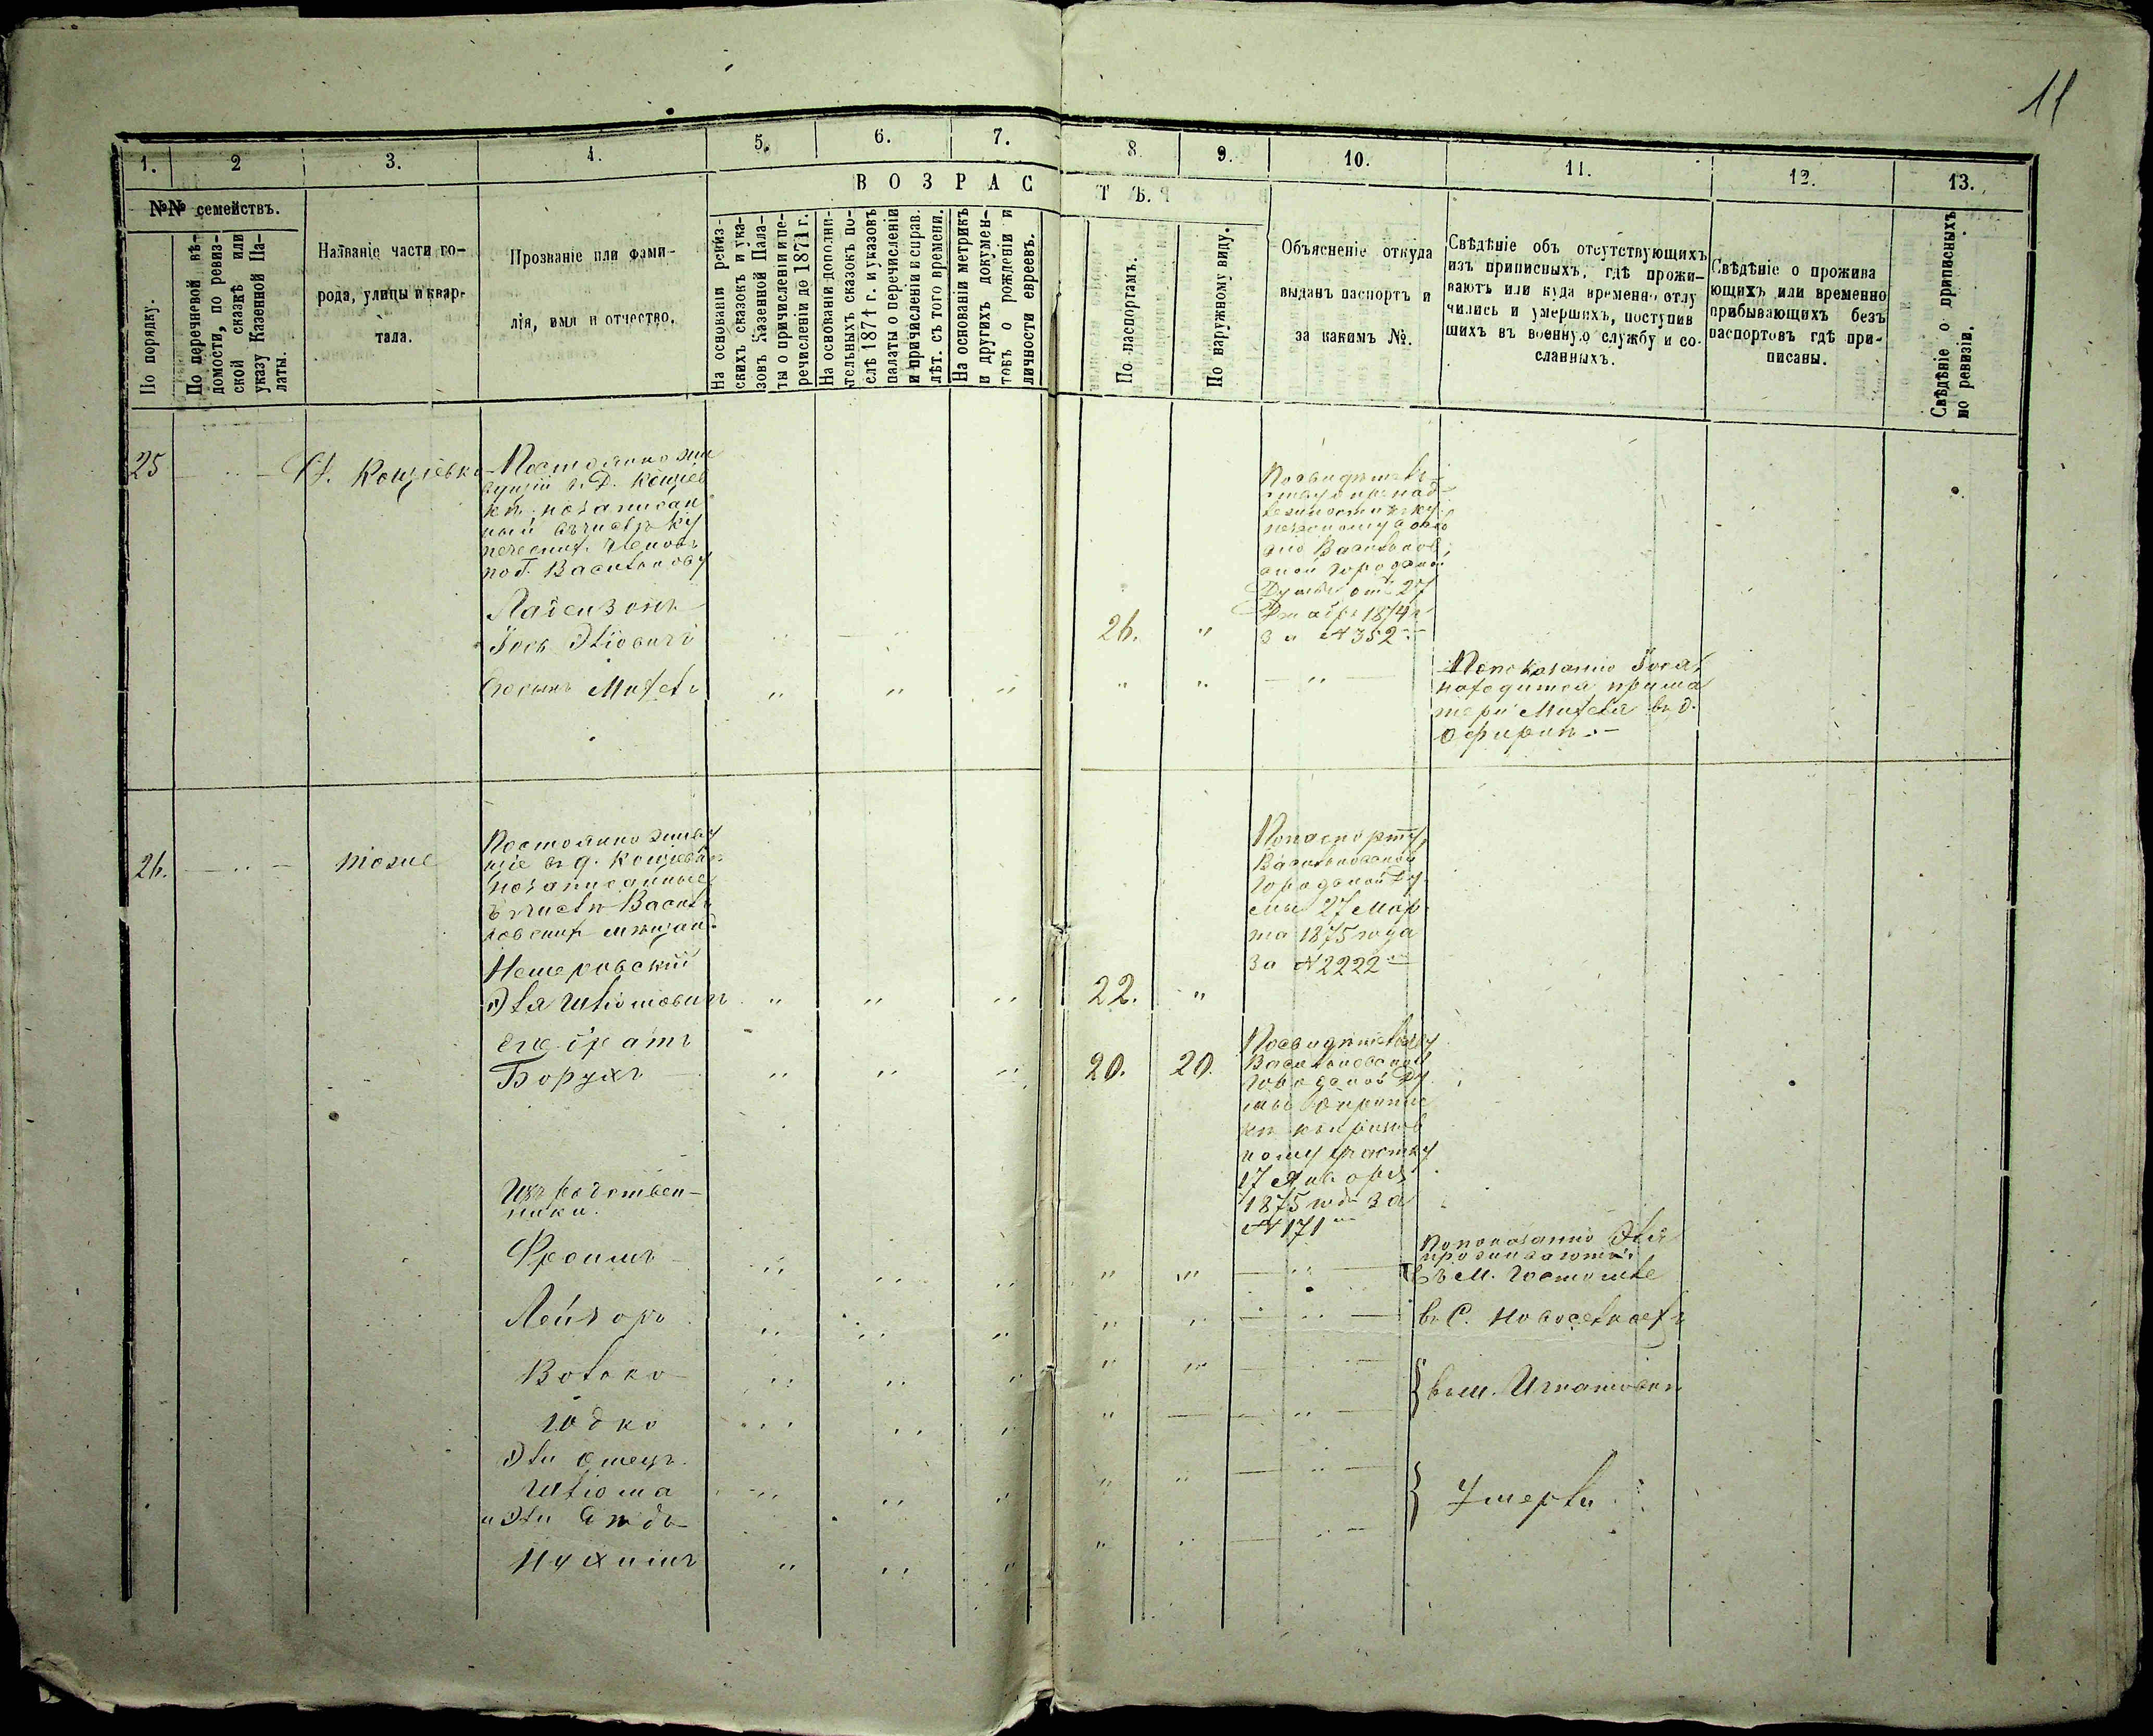 11
1.
2
3.
4.
5.
6.
7.
8.
9.
10.
11.
12.
13.
№№ семействъ.
По порядку.
По перечневой вѣ-
домости, по ревиз-
ской сказкѣ или
указу Казенной Па-
латы.
Названіе части го-
рода, улицы и квар-
тала.
Прозваніе или фами-
лія, имя и отчество.
ВОЗРАСТЪ.
На основаніи ревиз-
скихъ сказокъ и ука-
зовъ Казенной Пала-
ты о причисленіи и пе-
речисленіи до 1871 г.
На основаніи дополни-
тельныхъ сказокъ по-
слѣ 1871 г. и указовъ
палаты о перечисленіи
и причисленіи и справ.
лѣт. съ того времени.
На основаніи метрикъ
и другихъ докумен-
товъ о рожденіи и
личности евреевъ.
По паспортамъ.
По наружному виду.
Объясненіе откуда
выданъ паспортъ и
за какимъ №.
Свѣдѣніе объ отсутствующихъ
изъ приписныхъ, гдѣ прожи-
ваютъ или куда временно отлу
чились и умершихъ, поступив
шихъ въ военную службу и со-
сланныхъ.
Свѣдѣніе о прожива
ющихъ или временно
прибывающихъ безъ
паспортовъ гдѣ при-
писаны.
Свѣдѣніе о приписныхъ
по ревизіи.
25
Д. Кощіевка
Постоянно жи
вущій в Д. Кощіев
кѣ, незаписан
ный въ числѣ ку
печеских членовъ
по г. Василькову
Лабензонъ
Іось Эліовичъ
26. "
По свидѣтель-
ству о принад-
лежности къ ку
печескому
Васильков
ской городской
Думы от 27
Декабря 1874 г
За № 352
Его сынъ Михель
По показанію Іося
находится при ма
тери Михеля въ д.
Офирнѣ
26.
тоже
Постоянно живу
щіе въ д. Кощіевкѣ
незаписанные
в числѣ Василь
ковских мѣщан.
Немеровскій
Эля Шліомовичъ
22. "
По паспорту
Васильковской
городской Ду
мы 27 Мар
та 1875 года
За № 2222
его братъ
Борухъ
20. 20.
По свидѣтельству
Васильковской
городской Ду
мы о припис
кѣ къ призыв
ному участку
17 Января
1875 год За
№ 171
Их родствен-
ники.
Фроимъ
По показанію Эля
проживаютъ:
в М.
Лейзоръ
в С. Новоселках
Волько
Юдко
в м. Игнатовкѣ
Эли отецъ
Шліома
и Эли дѣдъ
Нухимъ
Умерли